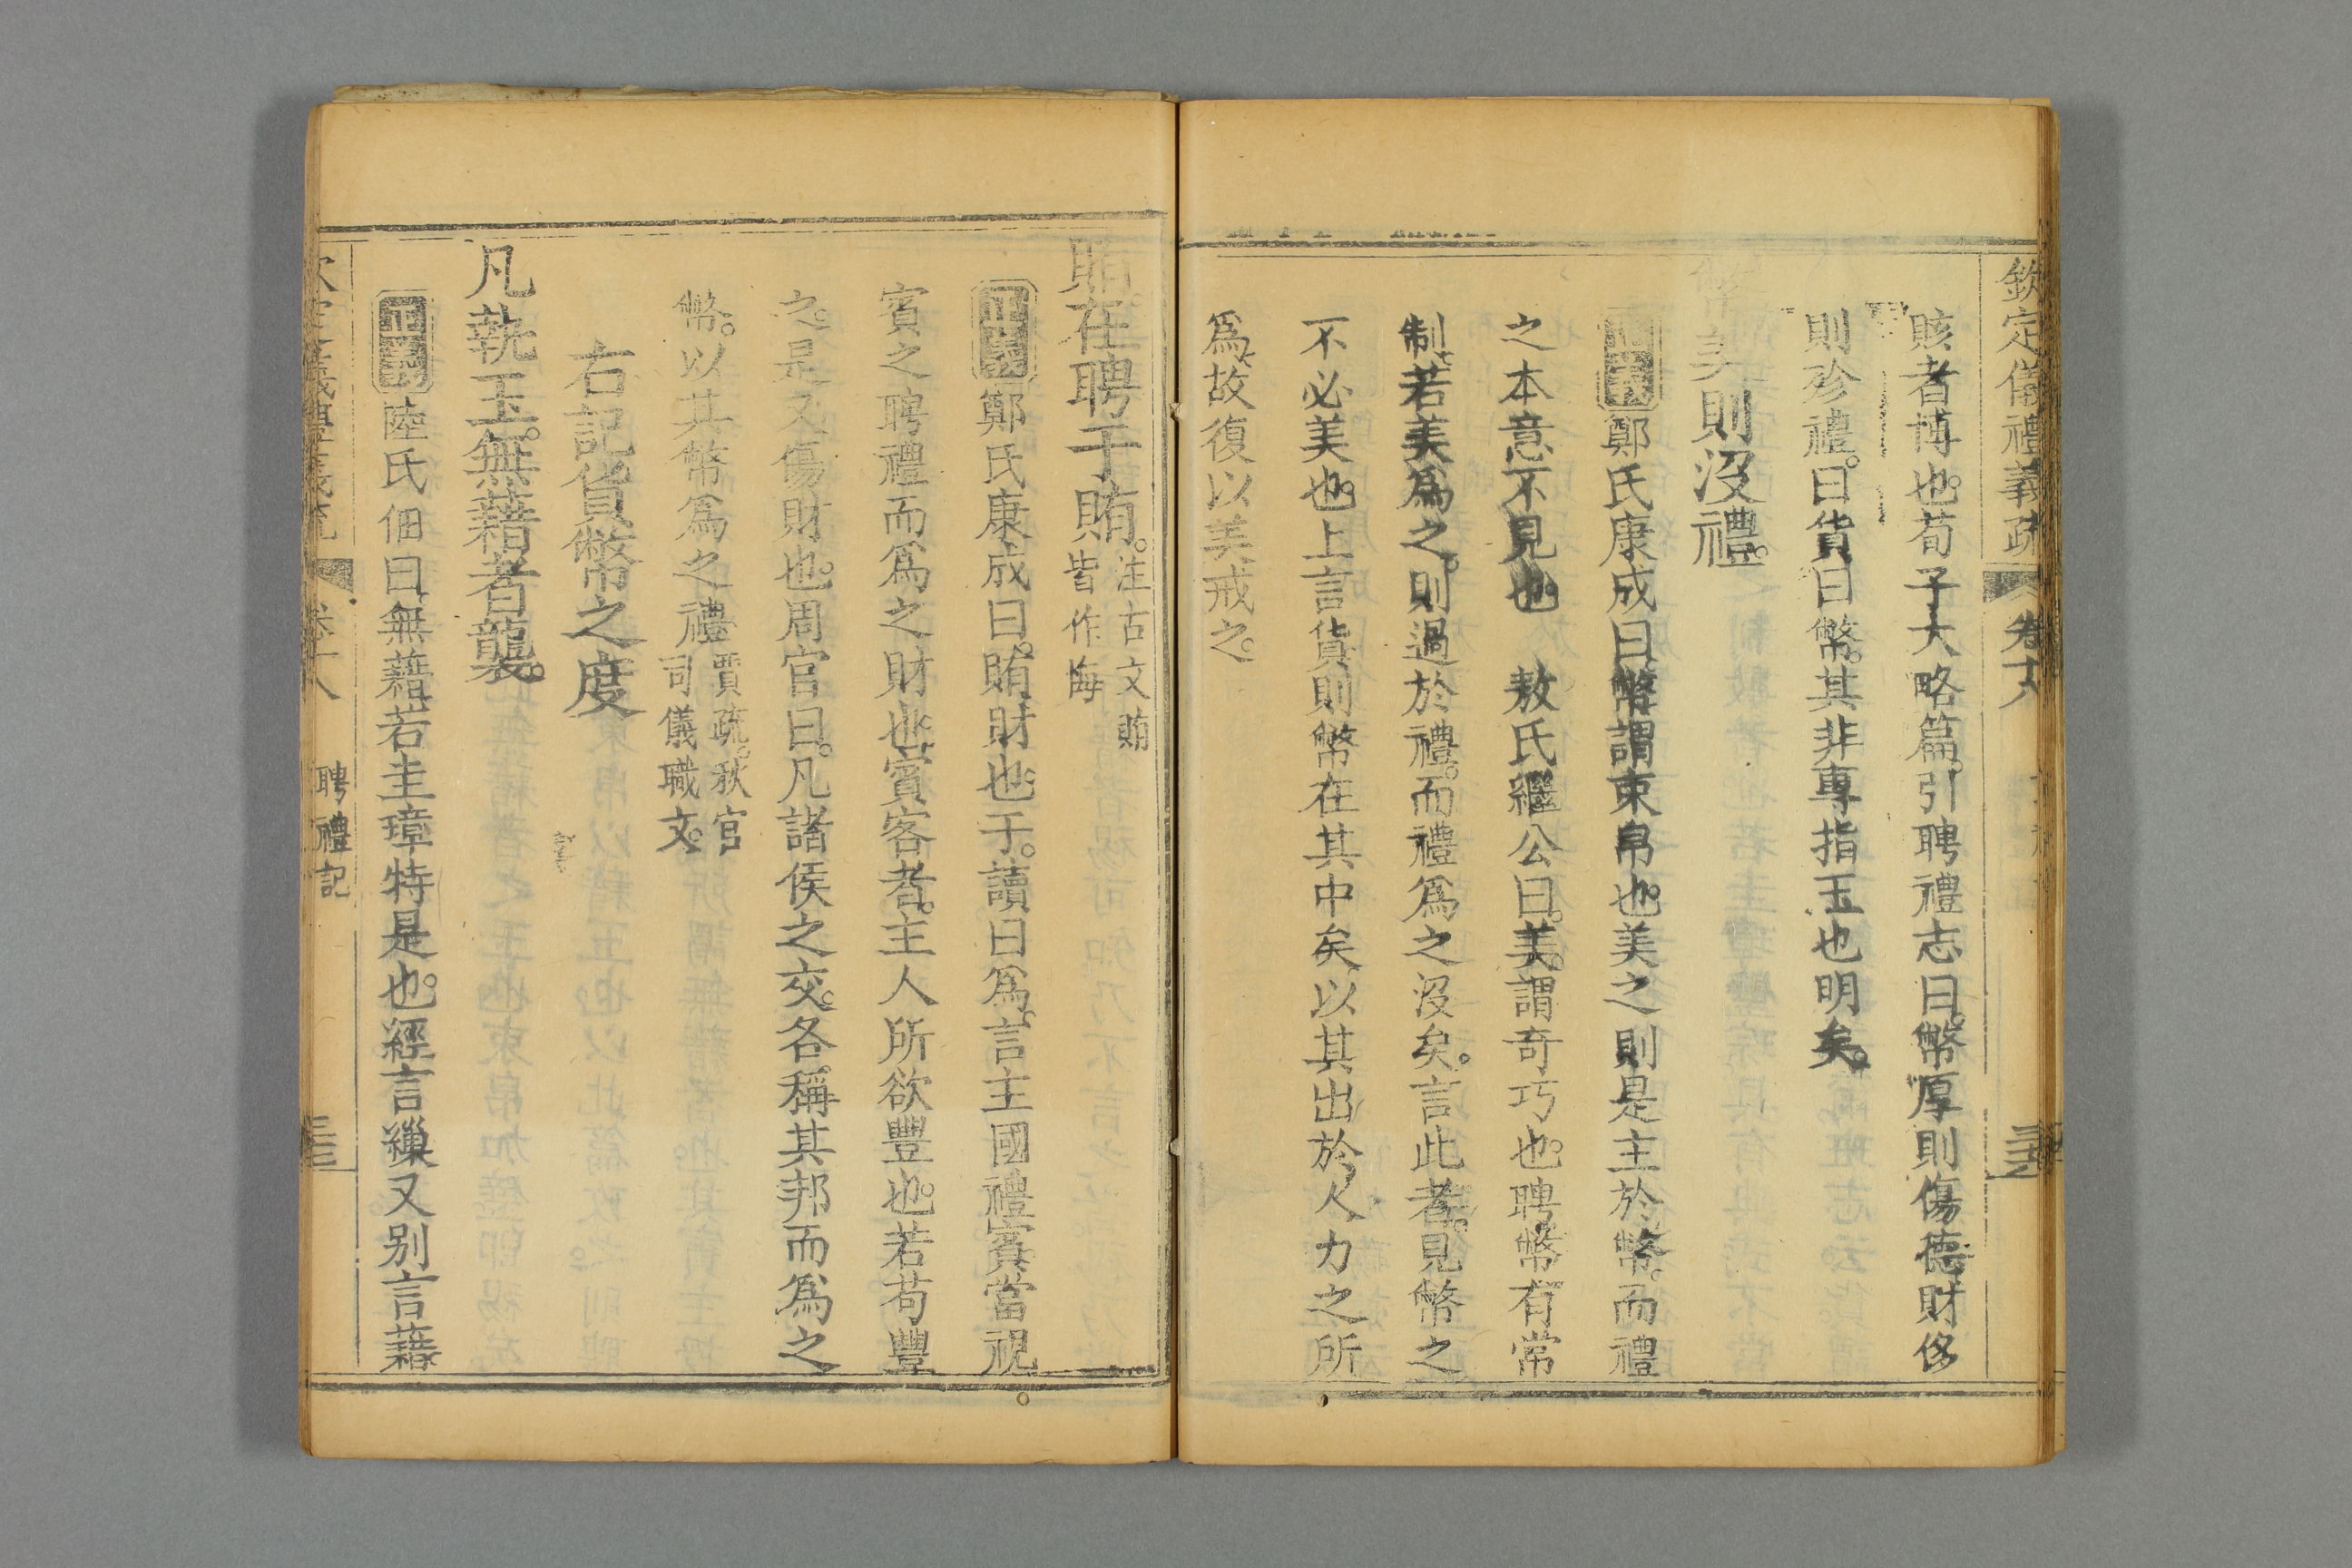 欽定儀禮義疏 卷十八
賅者博也荀子大略篇引聘禮志曰幣厚則傷德財侈
則殄禮。曰貨曰幣。其非專指玉也明矣。
幣美則沒禮。
正義 鄭氏康成曰幣謂束帛也美之則是主於幣。而禮
之本意不見也 敖氏繼公曰。美謂奇巧也。聘幣有常
制若美爲之。則過於禮。而禮爲之沒矣。言此者。見幣之
不必美也。上言貨則幣在其中矣以其出於人力之所
爲故復以美戒之。
賄在聘于賄。注古文賄
皆作悔
正義 鄭氏康成曰。賄財也。于。讀曰爲。言主國禮賓當視。
賓之聘禮而爲之財也。賓客者。主人所欲豐也。若苟豐
之。是又傷財也。周官曰。凡諸侯之交。各稱其邦而爲之
幣。以其幣爲之禮 賈疏。秋官
司儀職文。
右記貨幣之度
凡執玉。無藉者襲。
正義 陸氏佃曰無藉若圭璋特是也。經言繅又别言藉
卷十八 聘禮記